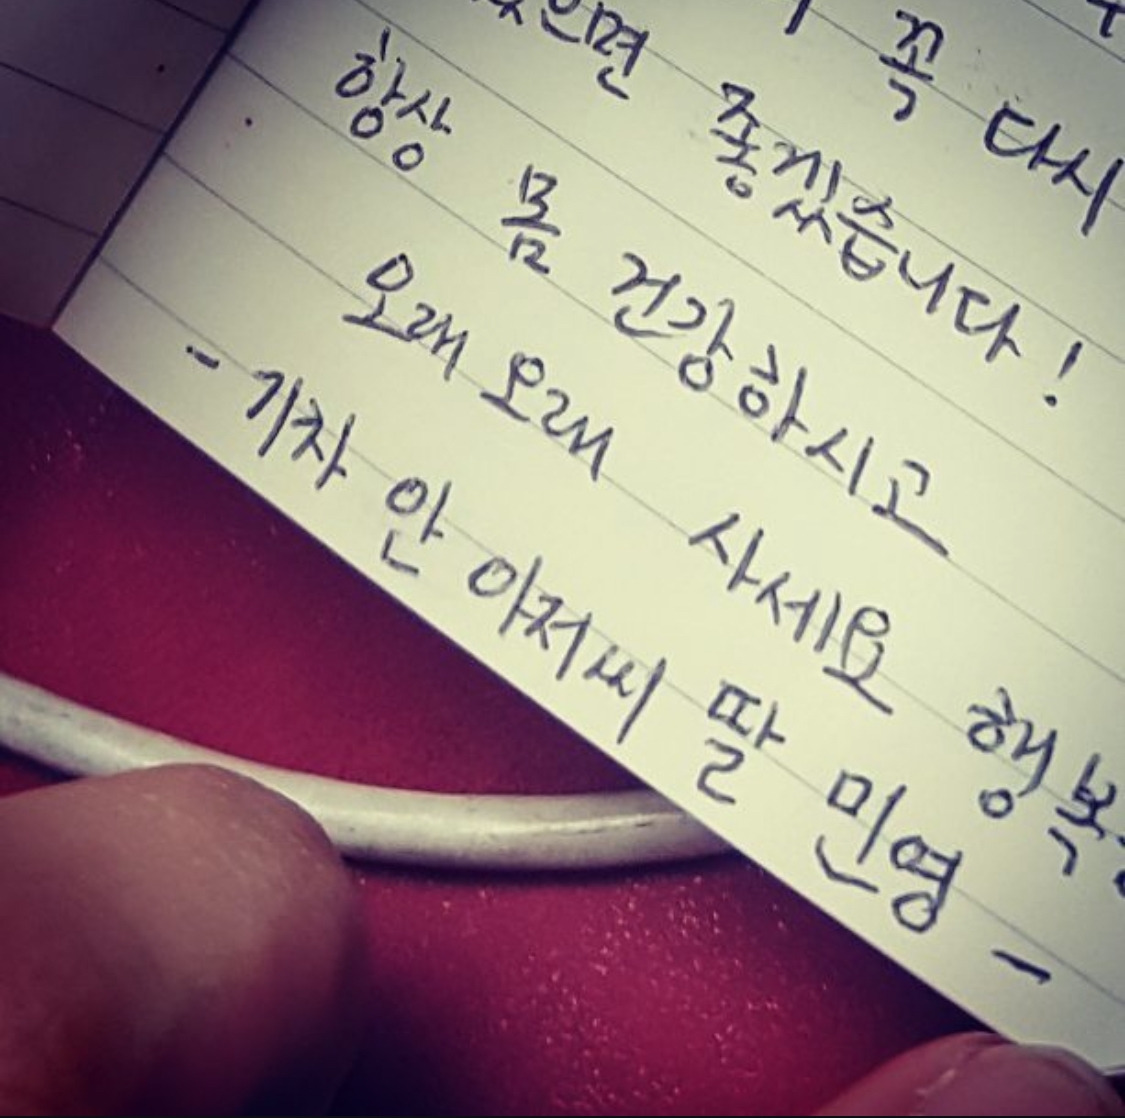 꼭 다시
으면 좋겠습니다!
항상 몸 건강하시고
오래 오래 사세요 행복
- 기자 안 아저씨 딸 민영 -